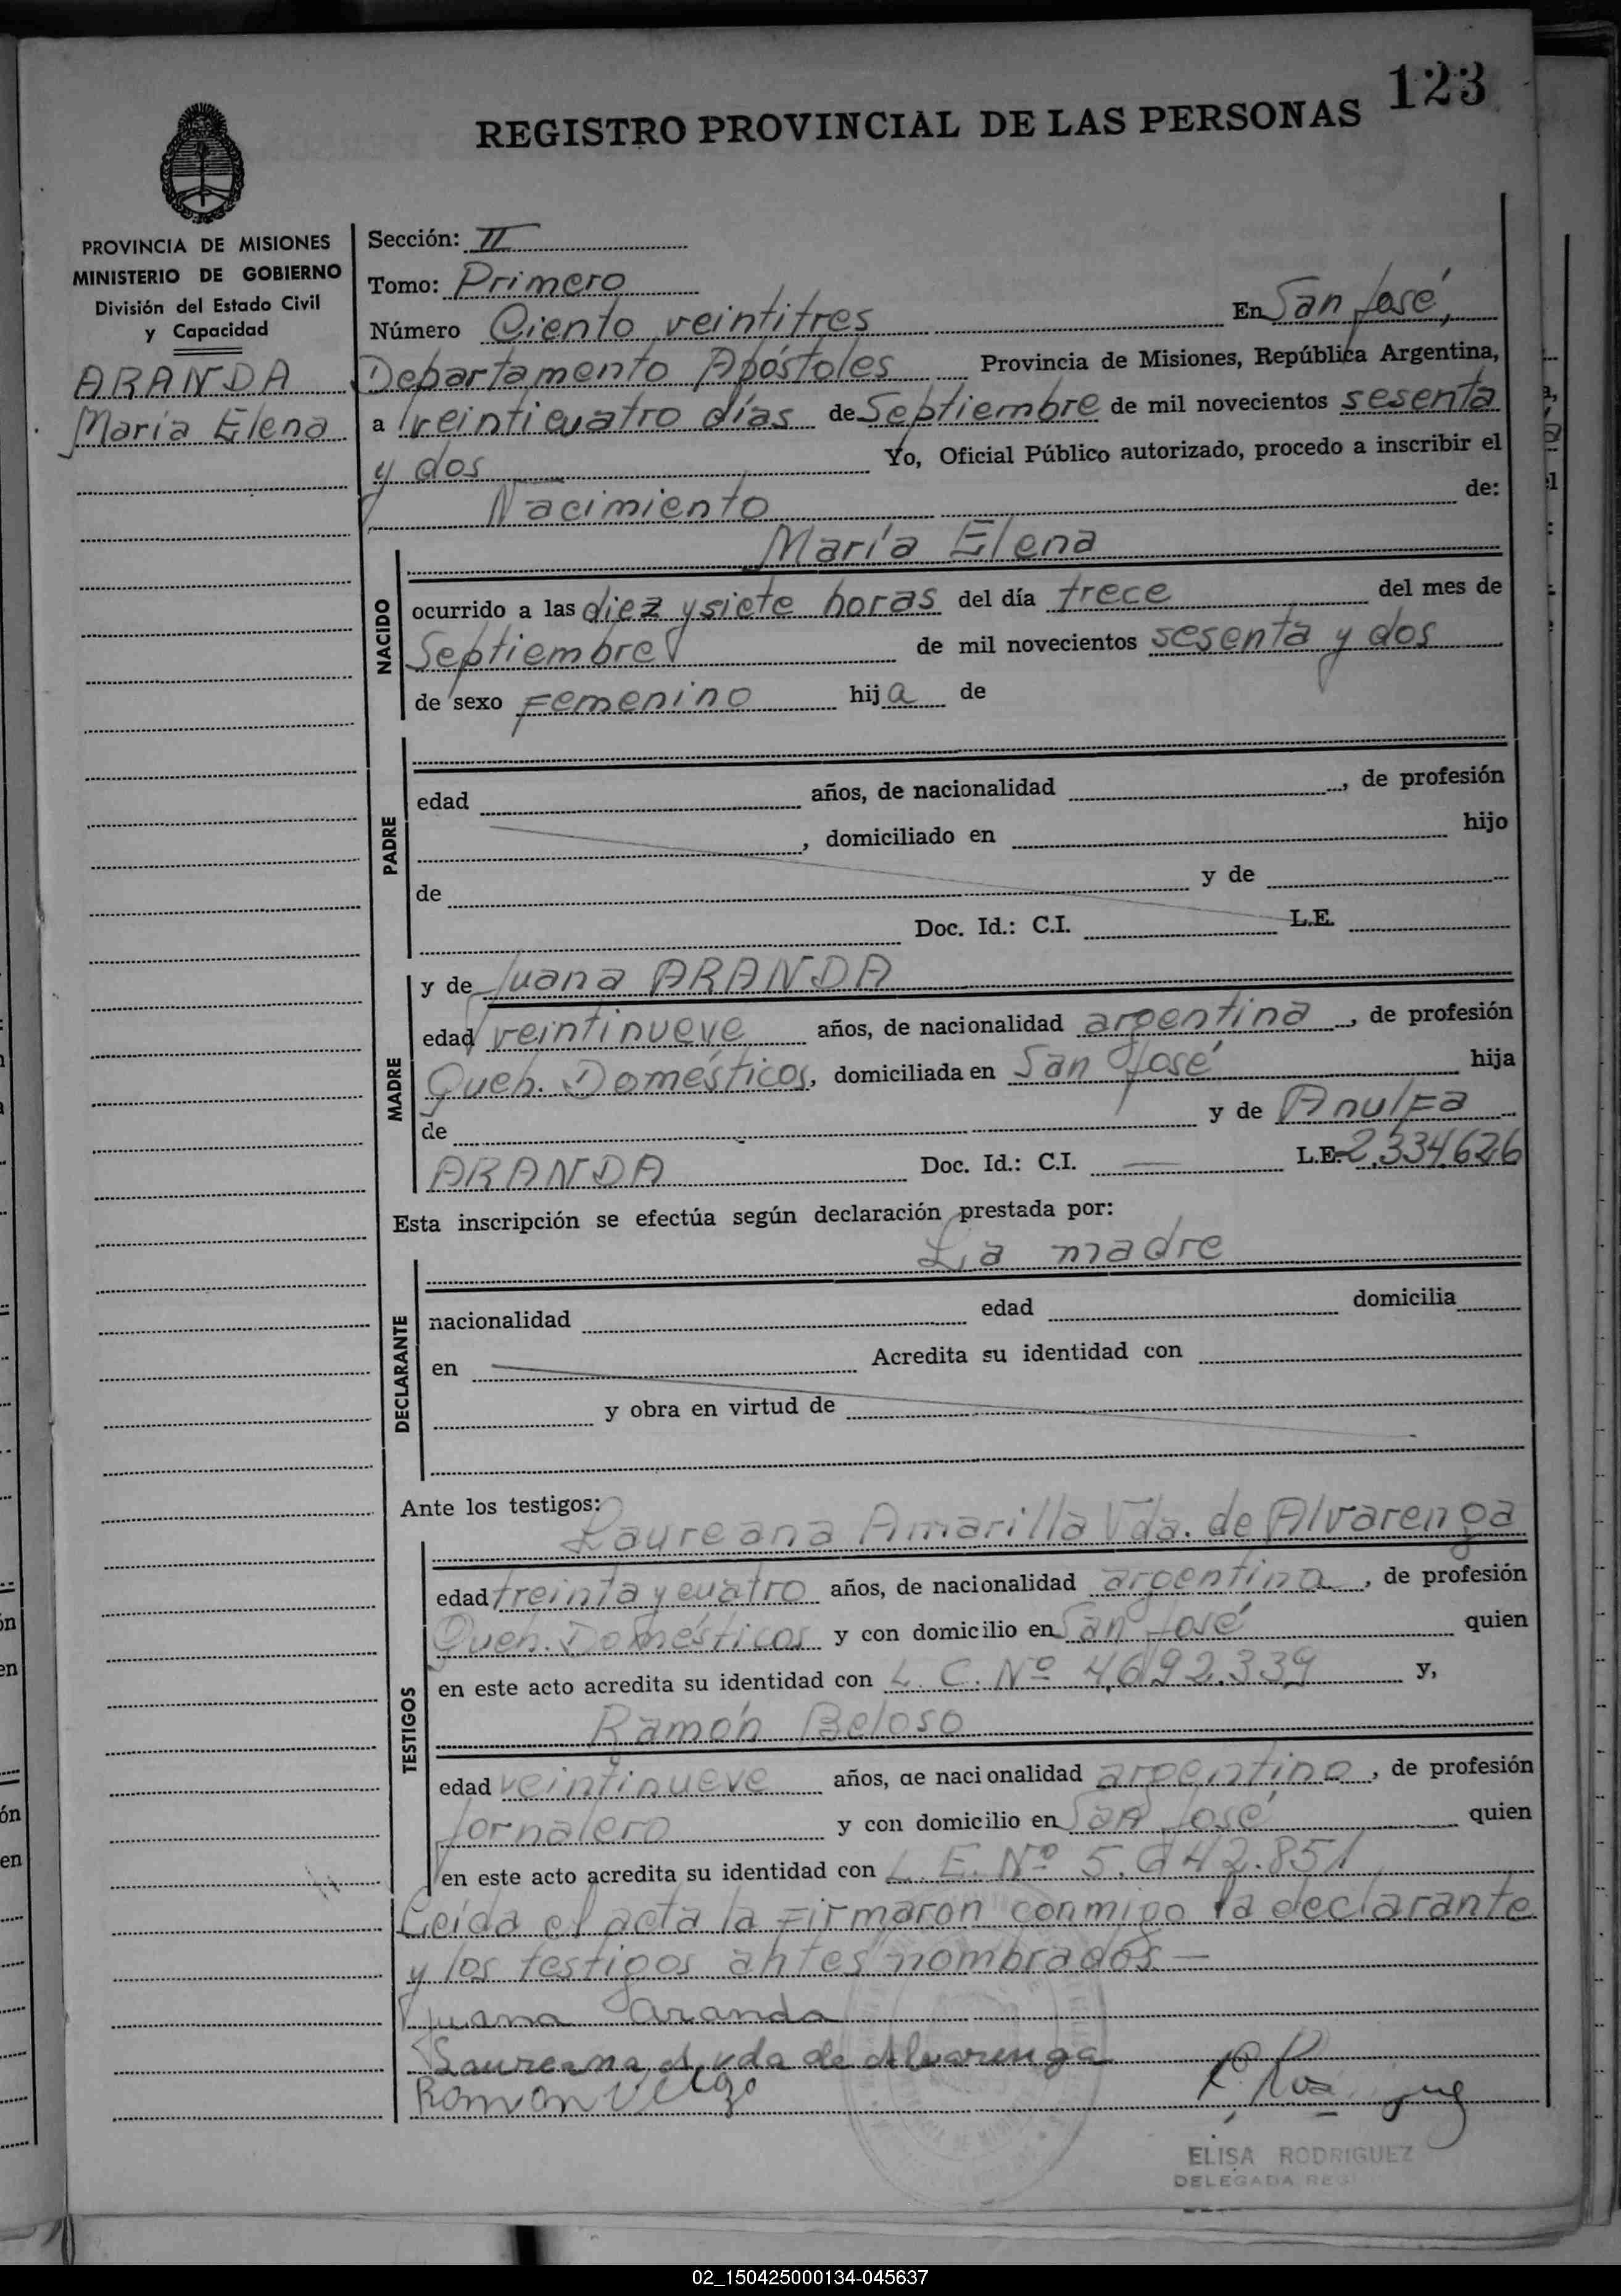 123
REGISTRO PROVINCIAL DE LAS PERSONAS
PROVINCIA DE MISIONES
MINISTERIO DE GOBIERNO
División del Estado Civil
y Capacidad
ARANDA
María Elena
Sección: II
Tomo: Primero
Número Ciento veintitres En San José,
Departamento Apóstoles Provincia de Misiones, República Argentina,
a veinticuatro días de Septiembre de mil novecientos sesenta
y dos Yo, Oficial Público autorizado, procedo a inscribir el
Nacimiento de:
María Elena
NACIDO
ocurrido a las diez y siete horas del día trece del mes de
Septiembre de mil novecientos sesenta y dos
de sexo Femenino hija de
PADRE
edad años, de nacionalidad , de profesión
, domiciliado en hijo
de y de
Doc. Id.: C.I. L.E.
MADRE
y de Juana ARANDA
edad veintinueve años, de nacionalidad argentina, de profesión
Queh. Domésticos, domiciliada en San José hija
de y de Anulfa
ARANDA Doc. Id.: C.I. — L.E. 2.334.626
Esta inscripción se efectúa según declaración prestada por:
La madre
DECLARANTE
nacionalidad edad domicilia
en Acredita su identidad con
y obra en virtud de
Ante los testigos:
Laureana Amarilla Vda. de Alvarenga
TESTIGOS
edad treinta y cuatro años, de nacionalidad argentina, de profesión
Queh. Domésticos y con domicilio en San José quien
en este acto acredita su identidad con L. C. Nº 4.692.339 y,
Ramón Beloso
edad veintinueve años, de nacionalidad argentino, de profesión
Jornalero y con domicilio en San José quien
en este acto acredita su identidad con L. E. Nº 5.642.851
Leída el acta la firmaron conmigo la declarante
y los testigos antes nombrados.—
Juana Aranda
Laureana A. vda de Alvarenga
Ramon
ELISA RODRIGUEZ
DELEGADA REG
02_150425000134-045637